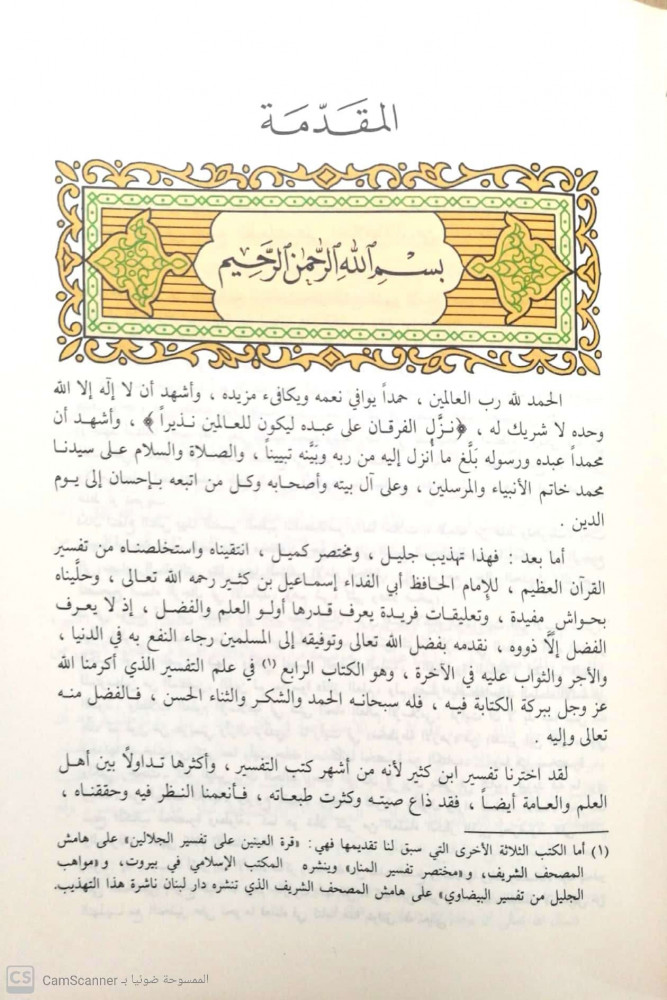 المقدّمة
بسم الله الرحمن الرحيم
الحمد لله رب العالمين ، حمداً يوافي نعمه ويكافىء مزيده ، وأشهد أن لا إله إلا الله
وحده لا شريك له ، ﴿نزَّل الفرقان على عبده ليكون للعالمين نذيراً﴾ ، وأشهد أن
محمداً عبده ورسوله بَلَّغ ما أُنزل إليه من ربه وبَيَّنه تبييناً ، والصلاة والسلام على سيدنا
محمد خاتم الأنبياء والمرسلين ، وعلى آل بيته وأصحابه وكل من اتبعه بإحسان إلى يوم
الدين .
أما بعد : فهذا تهذيب جليل ، ومختصر كميل ، انتقيناه واستخلصناه من تفسير
القرآن العظيم ، للإمام الحافظ أبي الفداء إسماعيل بن كثير رحمه الله تعالى ، وحلَّيناه
بحواشٍ مفيدة ، وتعليقات فريدة يعرف قدرها أولو العلم والفضل ، إذ لا يعرف
الفضل إلَّا ذووه ، نقدمه بفضل الله تعالى وتوفيقه إلى المسلمين رجاء النفع به في الدنيا ،
والأجر والثواب عليه في الآخرة ، وهو الكتاب الرابع (١) في علم التفسير الذي أكرمنا الله
عز وجل ببركة الكتابة فيه ، فله سبحانه الحمد والشكر والثناء الحسن ، فالفضل منه
تعالى وإليه .
لقد اخترنا تفسير ابن كثير لأنه من أشهر كتب التفسير ، وأكثرها تداولاً بين أهل
العلم والعامة أيضاً ، فقد ذاع صيته وكثرت طبعاته ، فأنعمنا النظر فيه وحققناه ،
(١) أما الكتب الثلاثة الأخرى التي سبق لنا تقديمها فهي: «قرة العينين على تفسير الجلالين» على هامش
المصحف الشريف، و«مختصر تفسير المنار» وينشره المكتب الإسلامي في بيروت، و«مواهب
الجليل من تفسير البيضاوي» على هامش المصحف الشريف الذي تنشره دار لبنان ناشرة هذا التهذيب.
CS الممسوحة ضوئيا بـ CamScanner